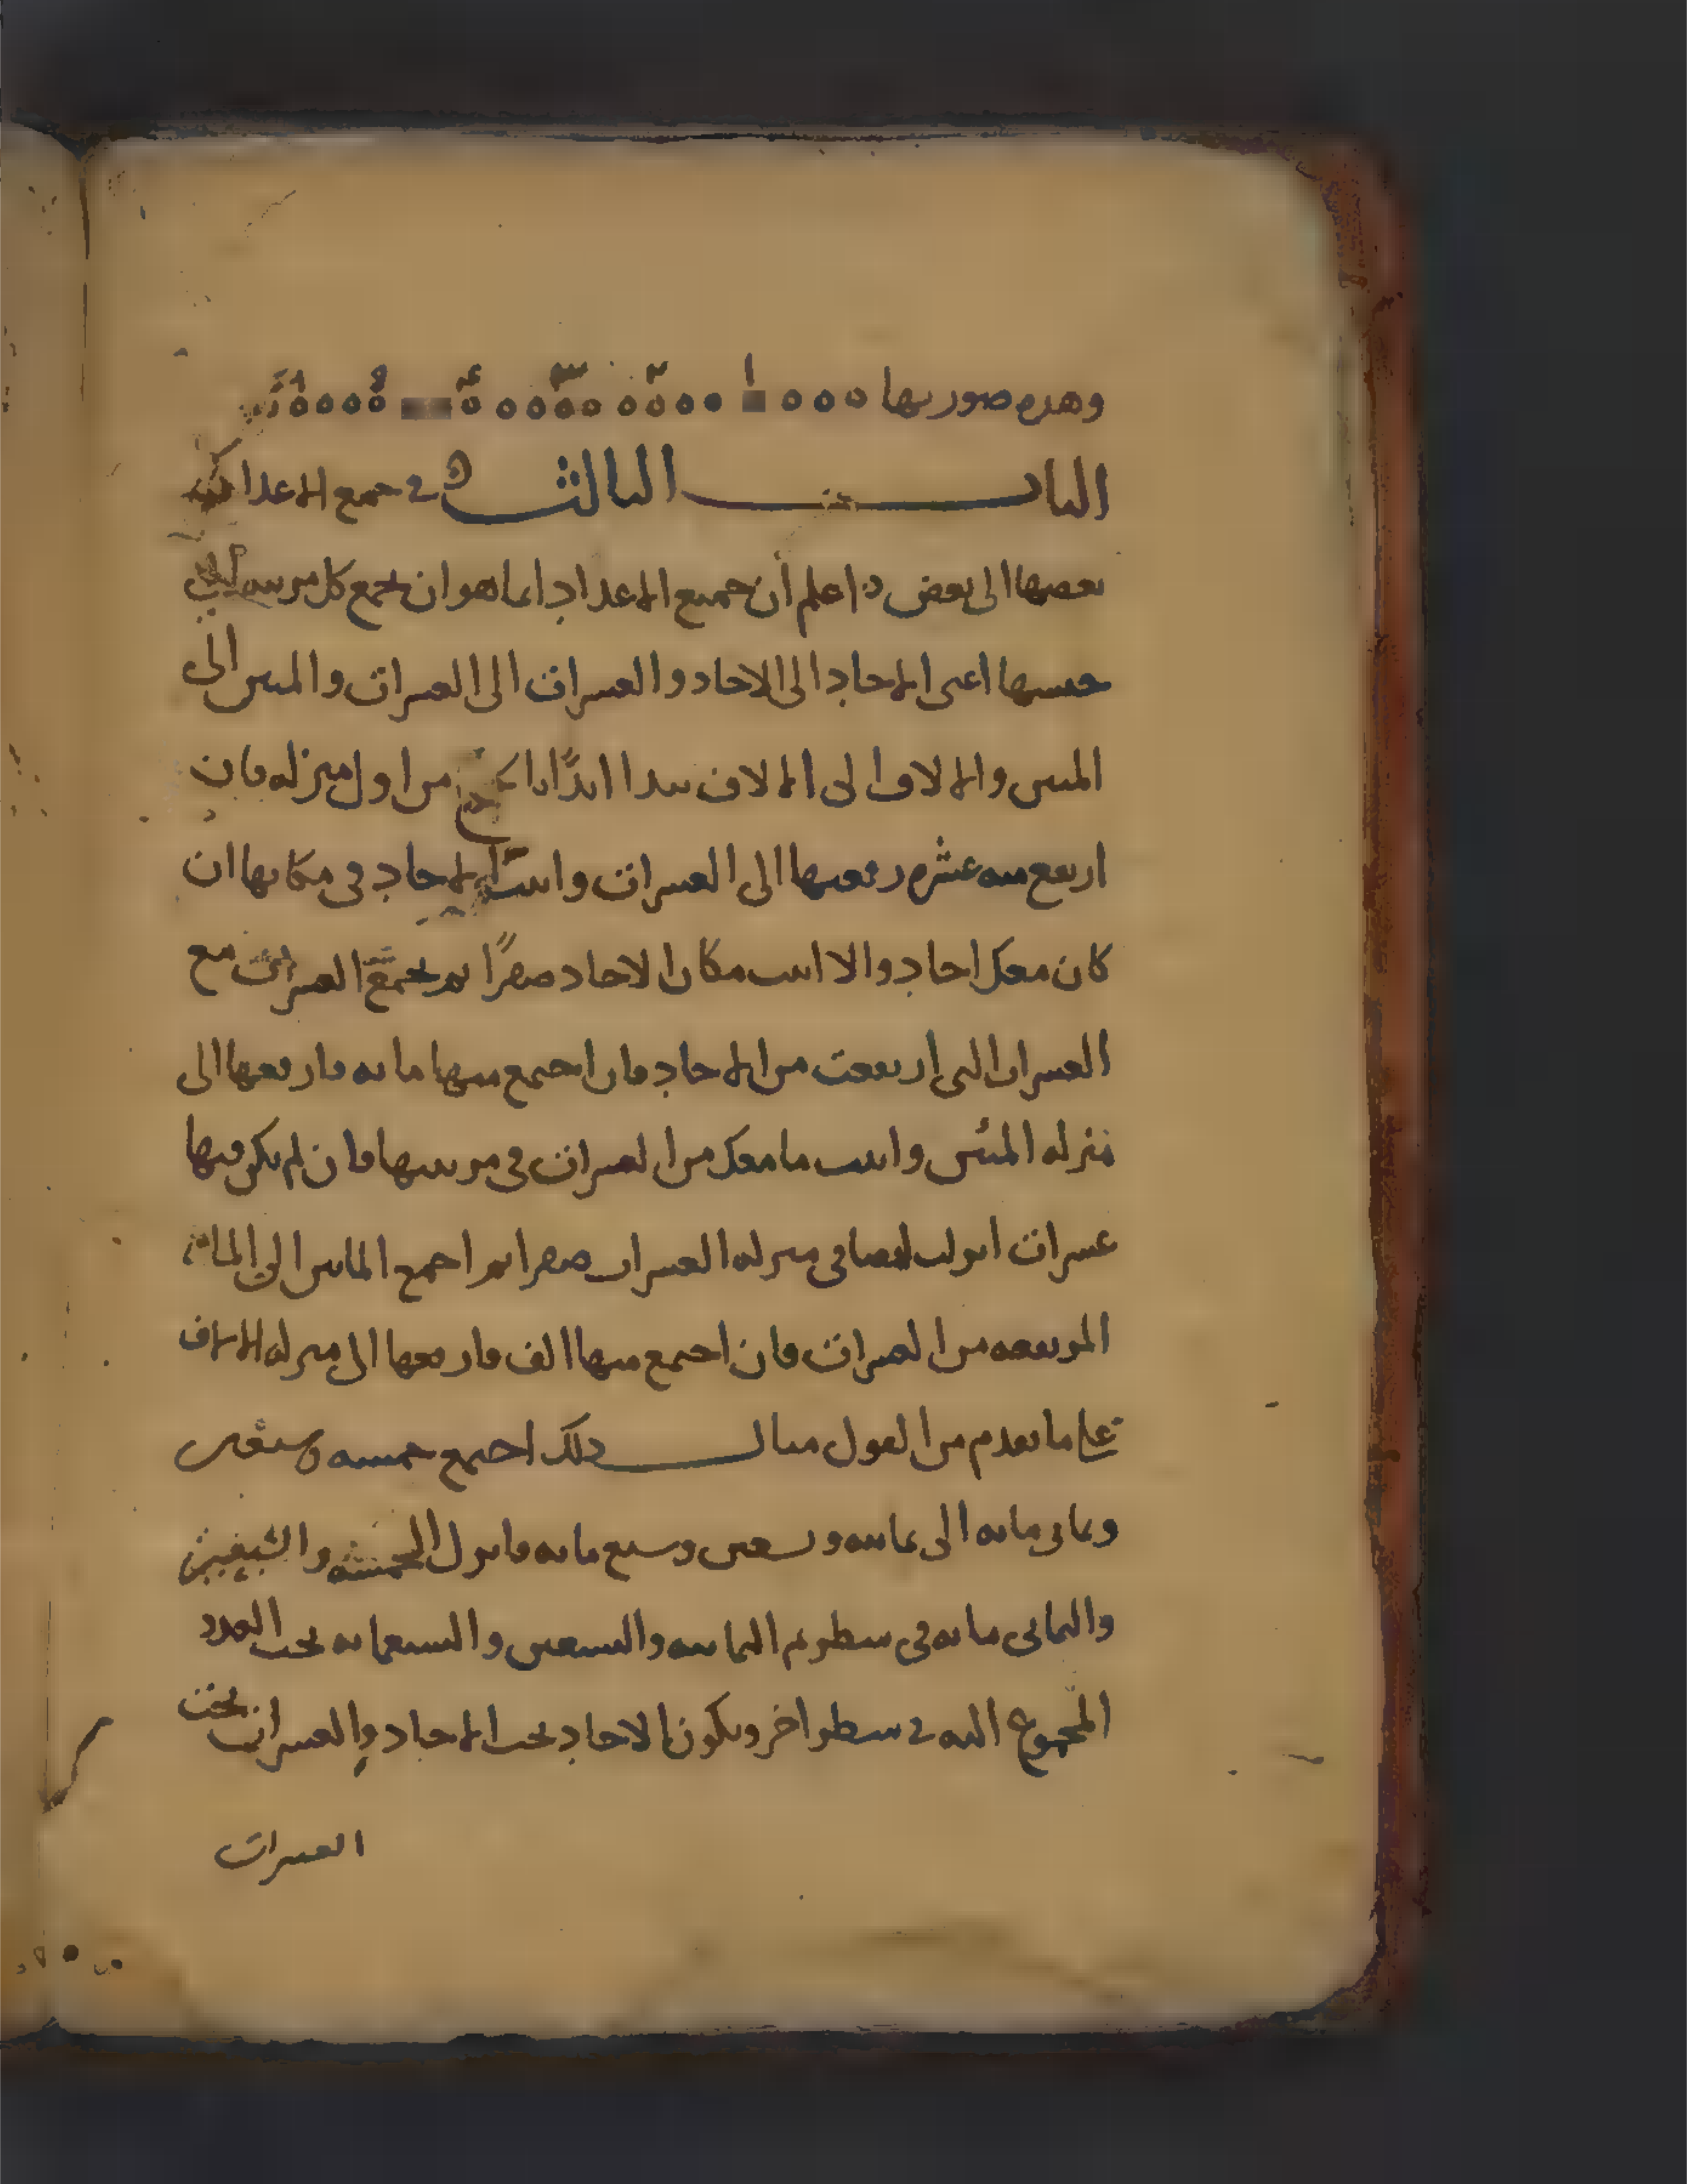 وهذه صورتها ٥٥٥
الباب الثالث في جمع الاعداد
بعضها الى بعض اعلم أن جميع الاعداد انما هو ان تجمع كل مرتبه الى
جنسها اعنى الاحاد الى الاحاد والعشرات الى العشرات والمئين الى
المئين والالاف الى الالاف تبدا ابدًا من اول منزله فان
ارتفع منه عشره رفعتها الى العشرات واثبت الاحاد فى مكانها ان
كان معك احاد والا اثبت مكان الاحاد صفرًا ثم تجمع العشرات مع
العشرات التى ارتفعت من الاحاد فان اجتمع منها مايه فارفعها الى
منزله المئين واثبت ما معك من العشرات فى مرتبتها فان لم يكن فيها
عشرات انزلت ايضا فى منزله العشرات صفرا ثم اجمع الماين الى
المرتفعه من العشرات فان اجتمع منها الف فارفعها الى منزله الالاف
على ما تقدم من القول مثال ذلك اجمع خمسه وسبعين
وثمانى مايه الى ثمانيه وتسعين وسبع مايه فانزل الخمسه والسبعين
والثمانى مايه فى سطر ثم الثمانيه والتسعين والسبعمايه تحت العدد
المجموع اليه فى سطر اخر ويكون الاحاد تحت الاحاد والعشرات تحت
العشرات